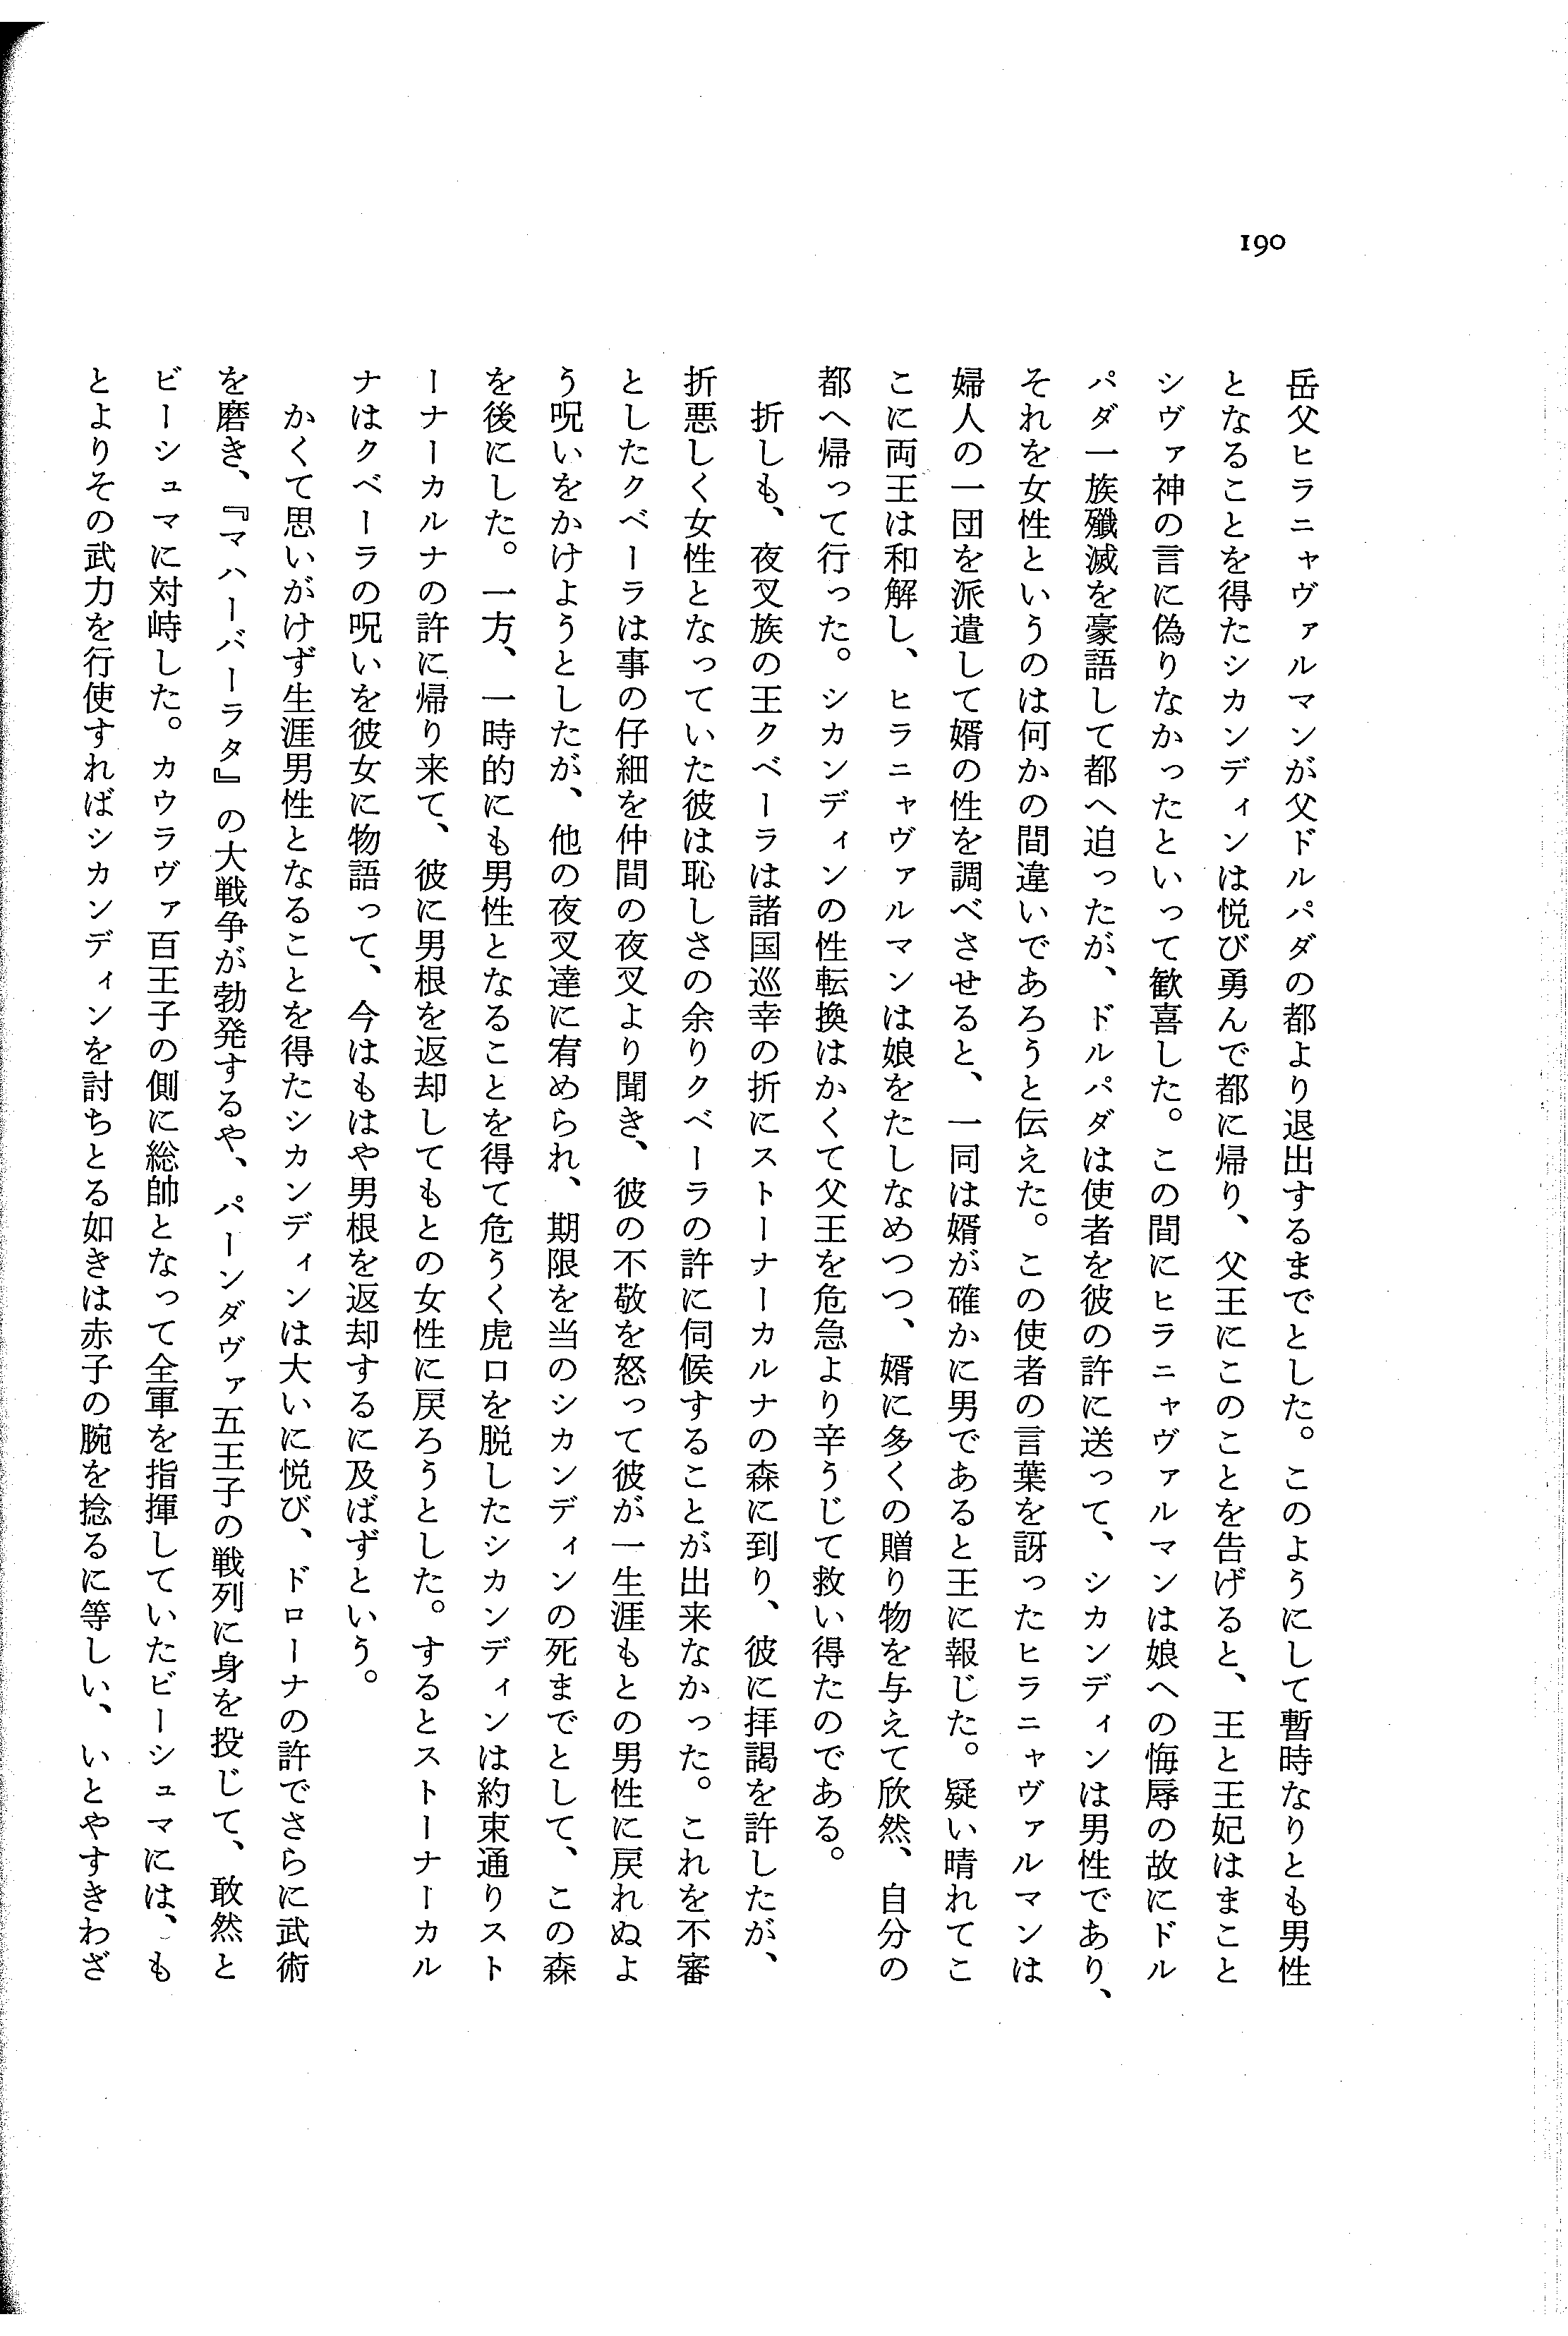 190
岳父ヒラニャヴァルマンが父ドルパダの都より退出するまでとした。このようにして暫時なりとも男性
となることを得たシカンディンは悦び勇んで都に帰り、父王にこのことを告げると、王と王妃はまこと
シヴァ神の言に偽りなかったといって歓喜した。この間にヒラニャヴァルマンは娘への侮辱の故にドル
パダ一族殲滅を豪語して都へ迫ったが、ドルパダは使者を彼の許に送って、シカンディンは男性であり、
それを女性というのは何かの間違いであろうと伝えた。この使者の言葉を訝ったヒラニャヴァルマンは
婦人の一団を派遣して婿の性を調べさせると、一同は婿が確かに男であると王に報じた。疑い晴れてこ
こに両王は和解し、ヒラニャヴァルマンは娘をたしなめつつ、婿に多くの贈り物を与えて欣然、自分の
都へ帰って行った。シカンディンの性転換はかくて父王を危急より辛うじて救い得たのである。
折しも、夜叉族の王クベーラは諸国巡幸の折にストーナーカルナの森に到り、彼に拝謁を許したが、
折悪しく女性となっていた彼は恥しさの余りクベーラの許に伺候することが出来なかった。これを不審
としたクベーラは事の仔細を仲間の夜叉より聞き、彼の不敬を怒って彼が一生涯もとの男性に戻れぬよ
う呪いをかけようとしたが、他の夜叉達に宥められ、期限を当のシカンディンの死までとして、この森
を後にした。一方、一時的にも男性となることを得て危うく虎口を脱したシカンディンは約束通りスト
ーナーカルナの許に帰り来て、彼に男根を返却してもとの女性に戻ろうとした。するとストーナーカル
ナはクベーラの呪いを彼女に物語って、今はもはや男根を返却するに及ばずという。
かくて思いがけず生涯男性となることを得たシカンディンは大いに悦び、ドローナの許でさらに武術
を磨き、『マハーバーラタ』の大戦争が勃発するや、パーンダヴァ五王子の戦列に身を投じて、敢然と
ビーシュマに対峙した。カウラヴァ百王子の側に総帥となって全軍を指揮していたビーシュマには、も
とよりその武力を行使すればシカンディンを討ちとる如きは赤子の腕を捻るに等しい、いとやすきわざ